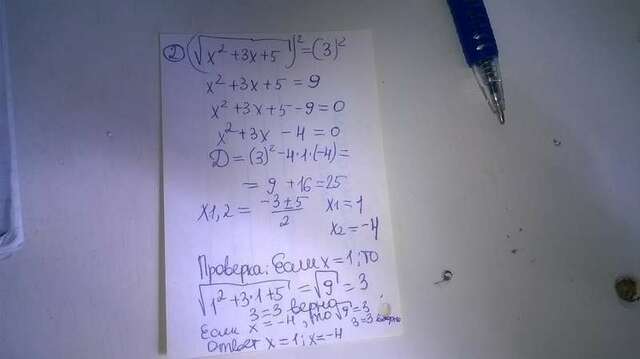 2) (√x² + 3x + 5)² = (3)²
x² + 3x + 5 = 9
x² + 3x + 5 - 9 = 0
x² + 3x - 4 = 0
D = (3)² - 4·1·(-4) =
= 9 + 16 = 25
x1,2 = -3±5/2 x1 = 1
x2 = -4
Проверка: Если x = 1; то
√1² + 3·1 + 5 = √9 = 3
3 = 3 верно
Если x = -4, то √9 = 3
3 = 3 верно
Ответ x = 1; x = -4